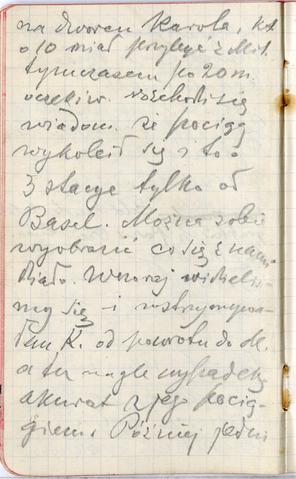 na dworcu Karola, kt.
o 10 miał przybyć z Mil.
tymczasem po 20 m.
oczekiw. rozchodzi się
wiadom. że pociąg
wykoleił się i to o
3 stacye tylko od
Basel. Można sobie
wyobrazić co się z nami
działo. Wczoraj
my się – i wstrzymywa-
łam K. od powrotu do M.
a tu nagle wypadek
akurat z jego pocią-
giem. Później jedni